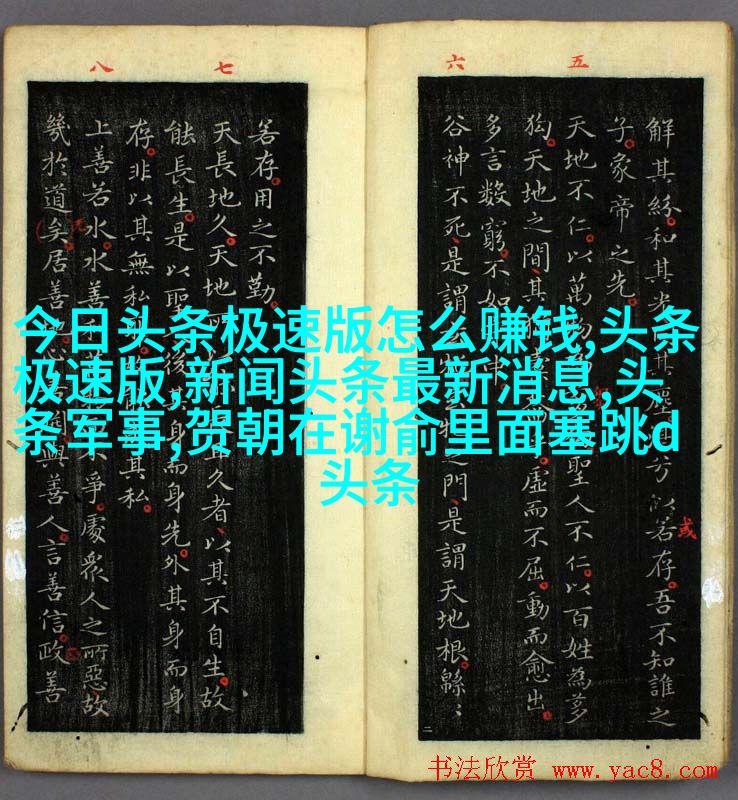 今日头条极速版怎么赚钱,头条
极速版,新闻头条最新消息,头
条军事,贺朝在谢俞里面塞跳d
头条
五
六
解其紛和其光其塵兮似若存吾不知誰之
或
子象帝之先
天地不仁以萬物為聖人不仁以百姓為芻
狗天地之間其虛而不屈動而愈出
多言數窮不如中
谷神不死是謂之門是謂天地根緜〻
七
八
若存用之不勤
天長地久天地所且久者以其不自生故
能長生是以聖後其身而身先外其身而身
存非以其無私其私
上善若水水善不爭處衆人之所惡故
幾於道矣居善與善人言善信政善
书法欣赏 www.yac8.com